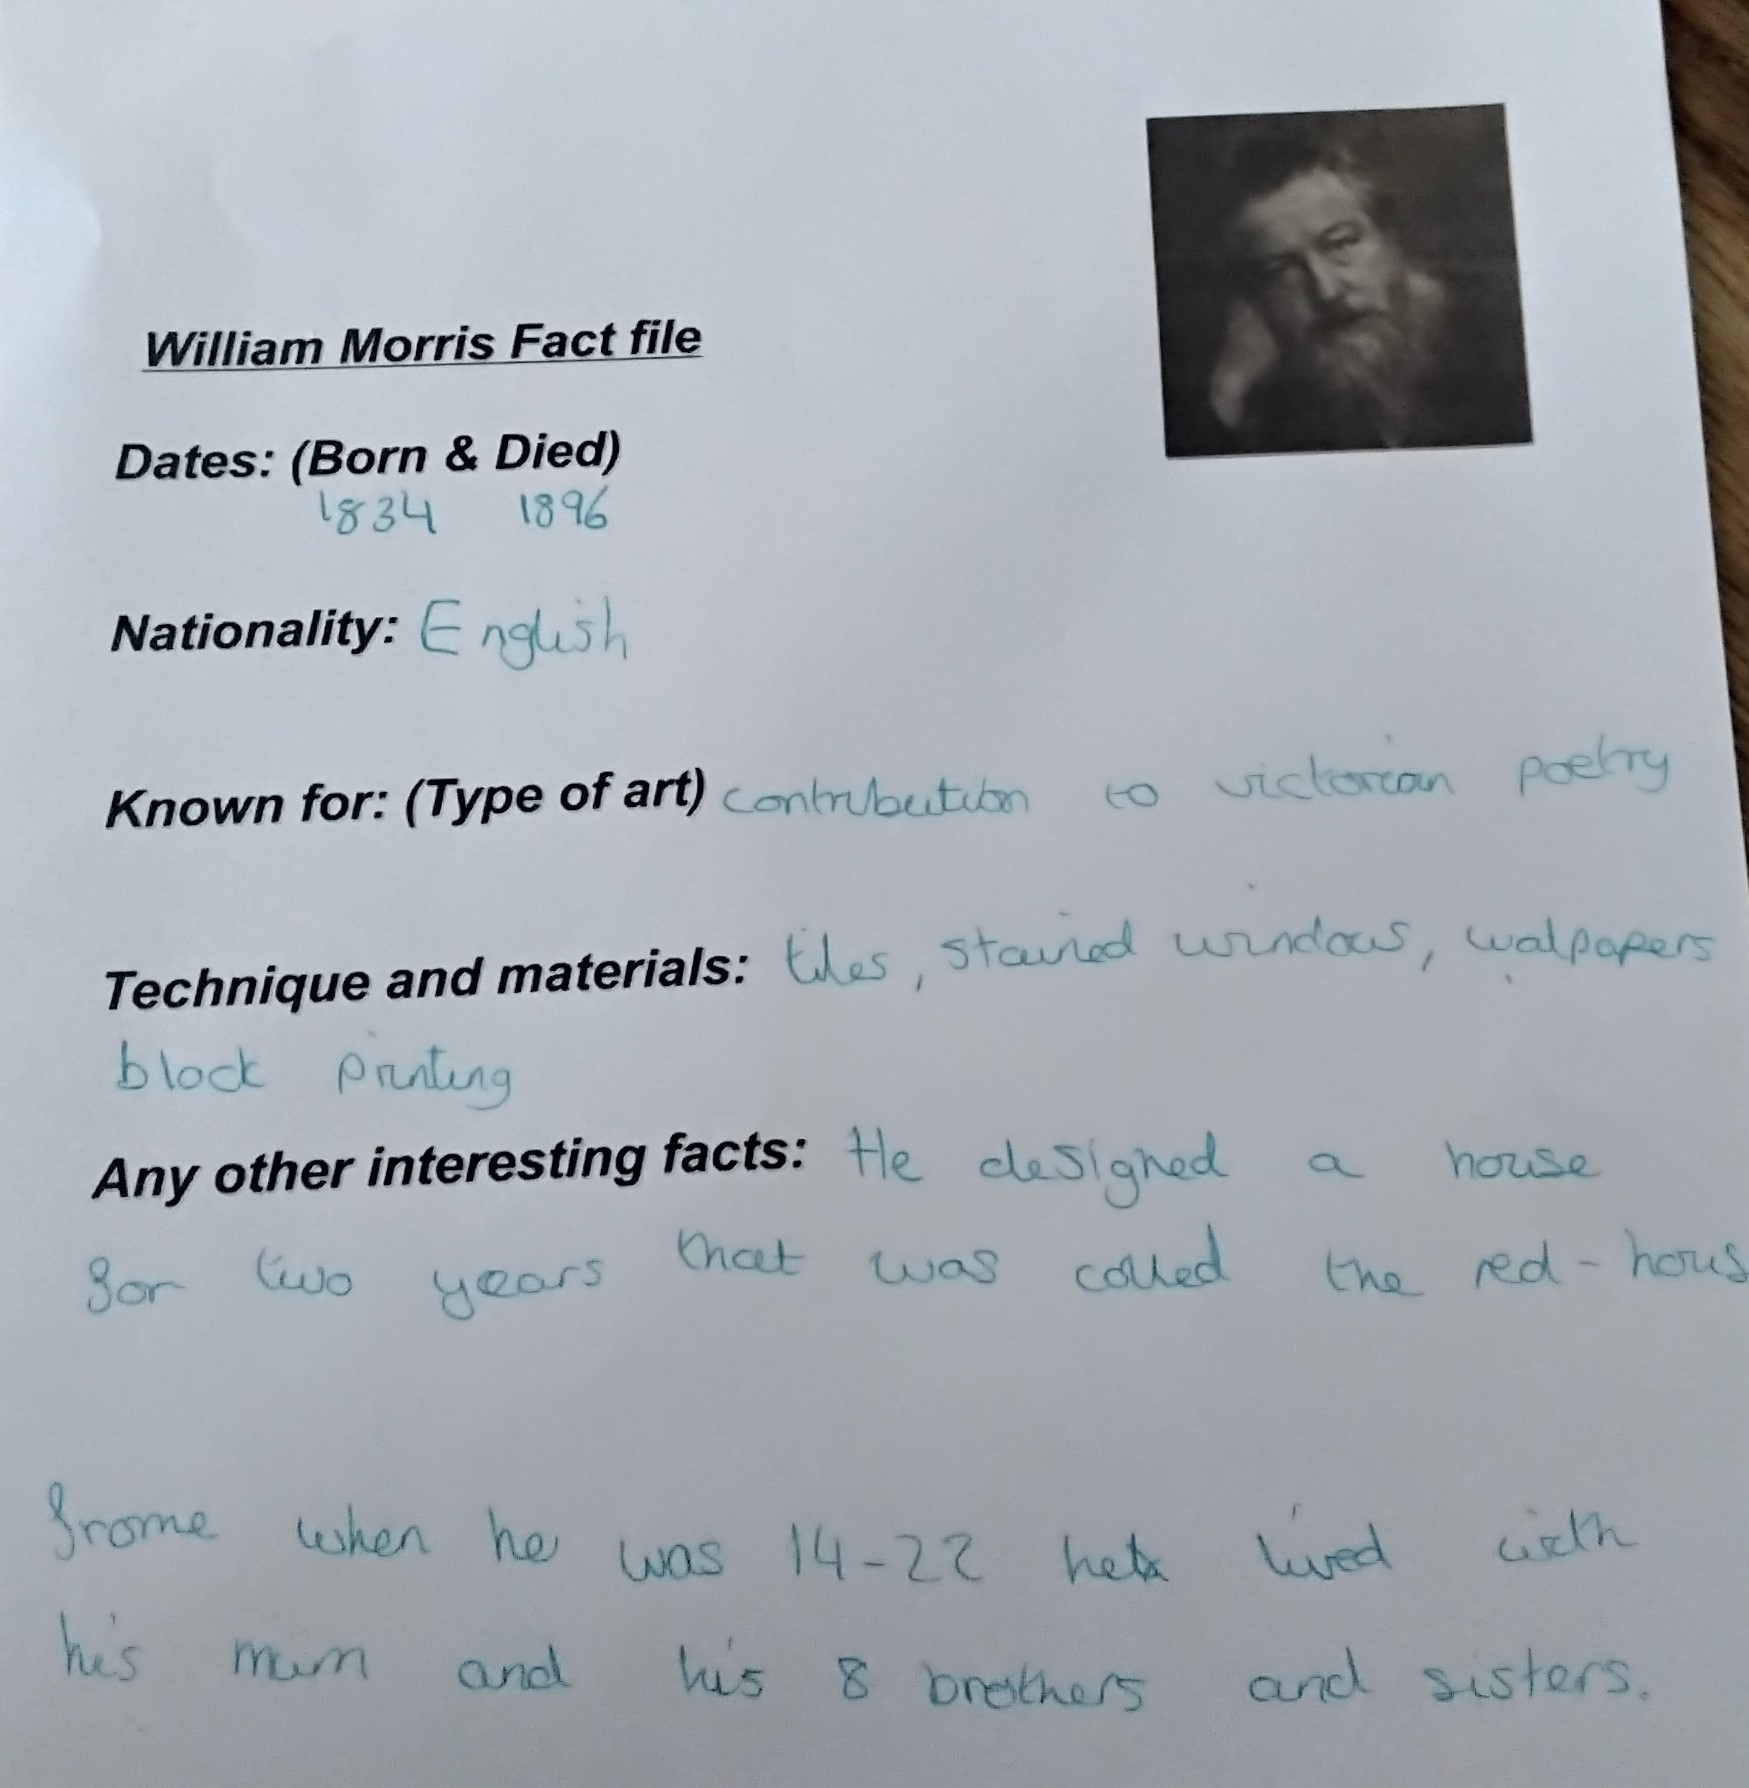 William Morris Fact file
Dates: (Born & Died)
1834 1896
Nationality: English
Known for: (Type of art) contribution to victorian poetry
Technique and materials: tiles, stained windows, walpapers
block printing
Any other interesting facts: He designed a house
for two years that was called the red-hous
frome when he was 14-22 he lived with
his mum and his 8 brothers and sisters.